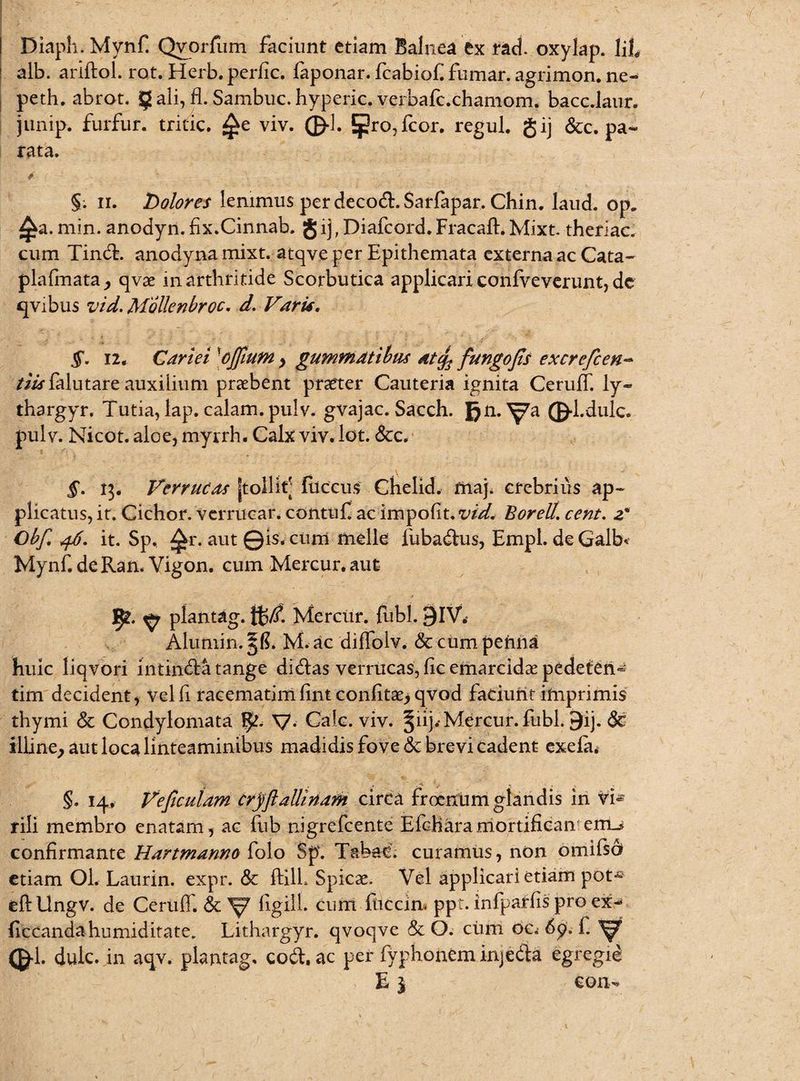 Diaph. Mynſ. Qvorſum faciunt etiam Balnea ex rad. oxylap. lil.
alb. ariſtol. rot. Herb. perſic. ſaponar. ſcabioſ. fumar. agrimon. ne-
peth. abrot. ☿ali, fl. Sambuc. hyperic. verbaſc. chamom. bacc. laur.
junip. furfur. tritic. 🜍e viv. ⊕l. ♁ro, ſcor. regul. ♁ij &c. pa-
rata.
§. 11. Dolores lenimus per decoct. Sarſapar. Chin. laud. op.
🜍a. min. anodyn. fix. Cinnab. ♁ij, Diaſcord. Fracaſt. Mixt. theriac.
cum Tinct. anodyna mixt. atqve per Epithemata externa ac Cata-
plaſmata, qvæ in arthritide Scorbutica applicari conſveverunt, de
qvibus vid. Möllenbroc. d. Varis.
§. 12. Cariei oſſium, gummatibus atq; fungoſis excreſcen-
tiis ſalutare auxilium præbent præter Cauteria ignita Ceruſſ. ly-
thargyr. Tutia, lap. calam. pulv. gvajac. Sacch. ♄n. 🜃a ⊕l. dulc.
pulv. Nicot. aloe, myrrh. Calx viv. lot. &c.
§. 13. Verrucas [tollit] ſuccus Chelid. maj. crebrius ap-
plicatus, it. Cichor. verrucar. contuſ. ac impoſit. vid. Borell. cent. 2.
Obſ. 46. it. Sp. 🜍r. aut 🜔is. cum melle ſubactus, Empl. de Galb.
Mynſ. de Ran. Vigon. cum Mercur. aut
℞. 🜄 plantag. ℔ß. Mercur. ſubl. ℈IV.
Alumin. ℥ß. M. ac diſſolv. & cum penna
huic liqvori intincta tange dictas verrucas, ſic emarcidæ pedeten-
tim decident, vel ſi racematim ſint conſitæ, qvod faciunt imprimis
thymi & Condylomata ℞. 🜄. Calc. viv. ℥iij. Mercur. ſubl. ℈ij. &
illine, aut loca linteaminibus madidis fove & brevi cadent exeſa.
§. 14. Veſiculam cryſtallinam circa frœnum glandis in vi-
rili membro enatam, ac ſub nigreſcente Eſchara mortificantem
confirmante Hartmanno ſolo Sp. Tabac. curamus, non omiſso
etiam Ol. Laurin. expr. & ſtill. Spicæ. Vel applicari etiam pot-
eſt Ungv. de Ceruſſ. & 🜃 ſigill. cum ſuccin. ppt. inſparſis pro ex-
ſiccanda humiditate. Lithargyr. qvoqve & O. cum oc. 69. ſ. 🜃
⊕l. dulc. in aqv. plantag. coct. ac per ſyphonem injecta egregiè
E 3 con-